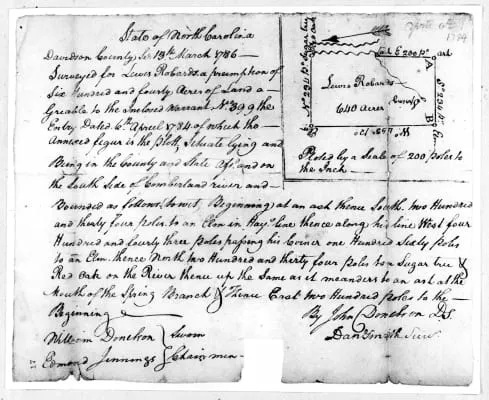 State of North Carolina
Davidson County, Sc 13th March 1786 —
Surveyed for Lewis Robards a preemption of
Six Hundred and fourty Acres of Land a
Greable to the Inclosed Warrant No. 399 the
Entry Dated 6th Aprill 1784 of which the
Annexed figur is the Plott, Scituate lying and
Being in the County and State Afsd. and on
the South Side of Cumberland river and —
Bounded as follows, towit, Beginning at an ash thence South two Hundred
and thirty four poles to an Elm in Hays line thence along his line West four
Hundred and fourty three poles passing his Corner one Hundred Sixty poles
to an Elm. thence North two Hundred and thirty four poles to a Sugar tree &
Red oak on the River thence up the Same as it meanders to an ash at the
Mouth of the Spring Branch & Thence East two Hundred poles to the —
Beginning
By John Donelson D.S.
Danl. Smith Surv.
William Donelson } Sworn
Edmond Jennings } Chain men
Lewis Robards
640 Acres
No. 234 Po. Sugar tree
Red oak
E 200 Po.
ash
So. 234 Po.
A
B
W
Ploted by a Scale of 200 poles to
the Inch
1784